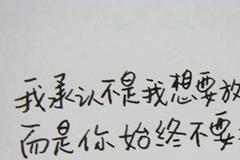 我承认不是我想要放
而是你始终不要